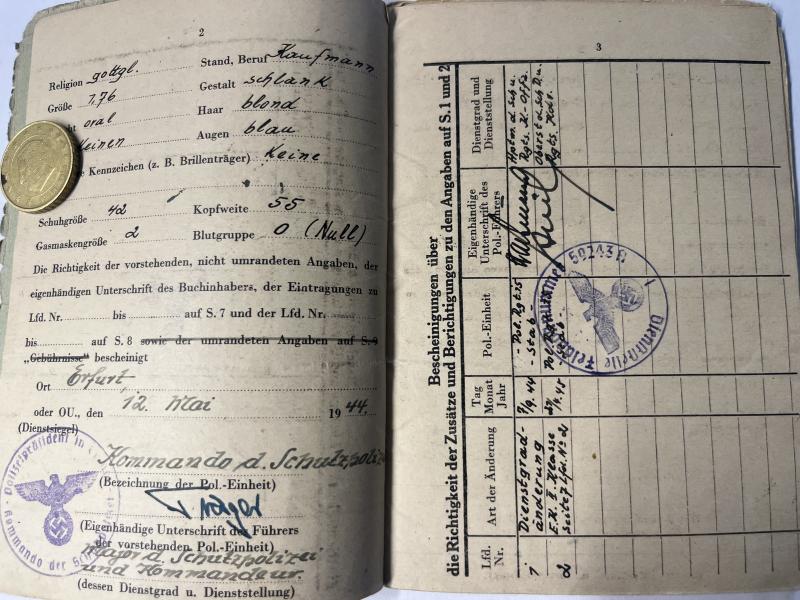 2
Religion gottgl. Stand, Beruf Kaufmann
Größe 1,76 Gestalt schlank
oral Haar blond
Augen blau
Kennzeichen (z. B. Brillenträger) Keine
Schuhgröße 42 Kopfweite 55
Gasmaskengröße 2 Blutgruppe O (Null)
Die Richtigkeit der vorstehenden, nicht umrandeten Angaben, der
eigenhändigen Unterschrift des Buchinhabers, der Eintragungen zu
Lfd. Nr. bis auf S. 7 und der Lfd. Nr.
bis auf S. 8 sowie der umrandeten Angaben auf S. 9
„Gebührnisse“ bescheinigt
Ort Erfurt
oder OU., den 12. Mai 1944.
(Dienstsiegel)
Kommando d. Schutzpolizei
(Bezeichnung der Pol.-Einheit)
Träger
(Eigenhändige Unterschrift des Führers
der vorstehenden Pol.-Einheit)
Major d. Schutzpolizei
und Kommandeur.
(dessen Dienstgrad u. Dienststellung)
Polizeipräsident in
Kommando der
3
Bescheinigungen über
die Richtigkeit der Zusätze und Berichtigungen zu den Angaben auf S. 1 und 2
Lfd. Nr.
Art der Änderung
Tag Monat Jahr
Pol.-Einheit
Eigenhändige Unterschrift des Pol.-Führers
Dienstgrad und Dienststellung
1 Dienstgrad-
änderung
- Stab -
2 E.K. II. Klasse
Seite 7 Lfd. No 2
Oberst d. Sch. u.
Rgts. Kdr.
Dienststelle Feldpostnummer 59243 B